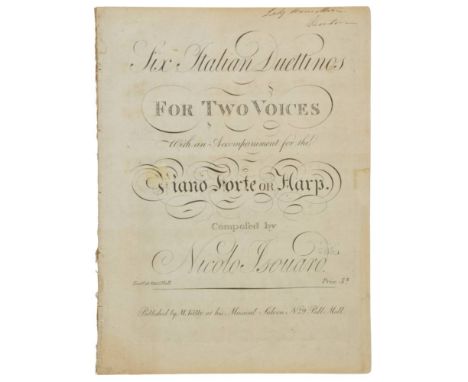 Lady Hamilton
Six Italian Duettinos
FOR TWO VOICES
With an Accompaniment for the
Piano Forte OR Harp.
Composed by
Nicolo Isouard.
Price 5s
Published by M. Kelly at his Musical Saloon No. 9 Pall Mall.